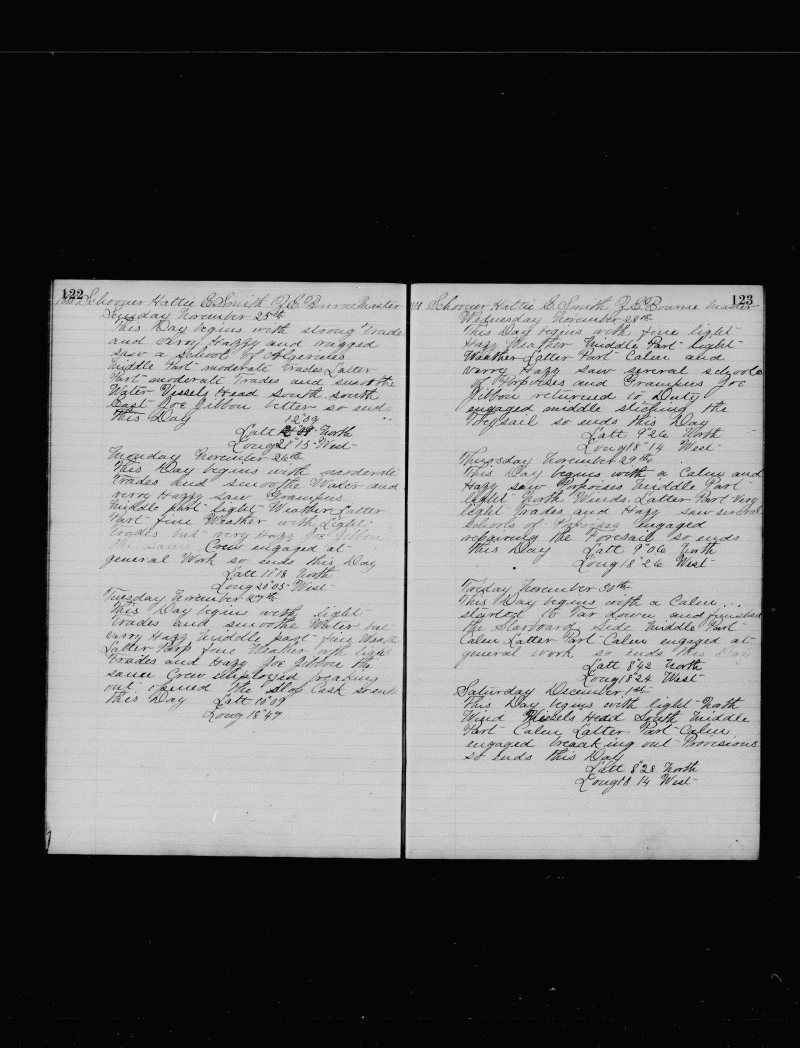 122
Schooner Hattie E Smith J E Bourne Master
Sunday November 25th
This Day begins with strong Trade
and verry Hazzy and ragged
saw a School of Algerines
Middle Part moderate Trades Latter
Part moderate Trades and smoothe
Water Vessels Head South South
East Joe Gibbon better so ends
this Day 12°09
Latt North
Long 20°15 West
Monday November 26th
This Day begins with moderate
Trades and smoothe Water and
verry Hazzy saw Grampus
Middle part light Weather Latter
Part fine Weather with Light
Trades but very Hazy Joe Gibbon
the same Crew engaged at
general Work so ends this Day
Latt 11°18 North
Long 20°05 West
Tuesday November 27th
This Day begins with light
Trades and smoothe Water but
varry Hazy Middle part fine Weath
Latter Part fine Weather with light
Trades and Hazy Joe Gibbon the
same Crew Employed breaking
out opened the Slop Cask So ends
this Day Latt 10°09
Long 18°47
123
Schooner Hattie E. Smith J E Bourne Master
Wednesday November 28th
This Day begins with fine light
Hazy Weather Middle Part light
Weather Latter Part Calm and
verry Hazy saw several schools
of Porpoises and Grampus Joe
Gibbon returned to Duty
engaged middle stiching the
Forsail so ends this Day
Latt 9°26 North
Long 18°14 West
Thursday November 29th
This Day begins with a Calm and
Hazy saw Porpoises Middle Part
light North Winds. Latter Part Very
light Trades and Hazy saw several
Schools of engaged
repairing the Foresail so ends
this Day Latt 9°06 North
Long 18°26 West
Friday November 30th
This Day begins with a Calm
started to Tar down and finished
the Starboard Side Middle Part
Calm Latter Part Calm engaged at
general work so ends this Day
Latt 8°42 North
Long 18°24 West
Saturday December 1st
This Day begins with light North
Wind Vessels Head South Middle
Part Calm Latter Part Calm
engaged breaking out Provisions
so ends this Day
Latt 8°28 North
Long 18 14 West